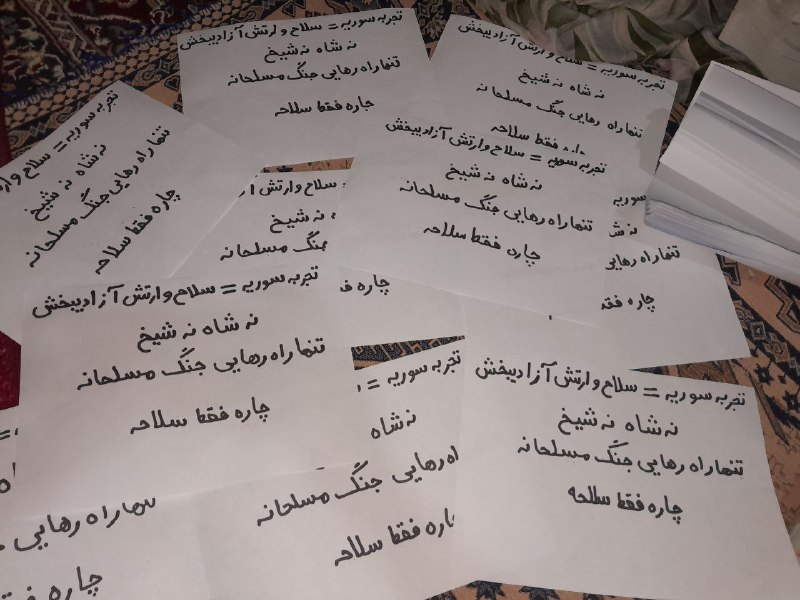 تجربه سوریه = سلاح و ارتش آزادیبخش
نه شاه نه شیخ
تنها راه رهایی جنگ مسلحانه
چاره فقط سلاحه
تجربه سوریه = سلاح و ارتش آزادیبخش
نه شاه نه شیخ
تنها راه رهایی جنگ مسلحانه
فقط سلاحه
تجربه سوریه = سلاح و ار
نه شاه نه شیخ
تنها راه رهایی جنگ مسلحانه
چاره فقط سلاحه
تجربه سوریه = سلاح و ارتش آزادیبخش
نه شاه نه شیخ
تنها راه رهایی جنگ مسلحانه
چاره فقط سلاحه
سلاح و ارتش آ
نه شیخ
جنگ مسلحانه
سوریه
تنها راه رهایی
چاره فقط
چاره
تجربه سوریه = سلاح و ارتش آزادیبخش
نه شاه نه شیخ
تنها راه رهایی جنگ مسلحانه
چاره فقط سلاحه
تجربه سوریه =
نه شاه
راه رهایی جنگ مسلحانه
چاره فقط سلاحه
تجربه سوریه = سلاح و ارتش آزادیبخش
نه شاه نه شیخ
تنها راه رهایی جنگ مسلحانه
چاره فقط سلاحه
تنها راه رهایی
چاره